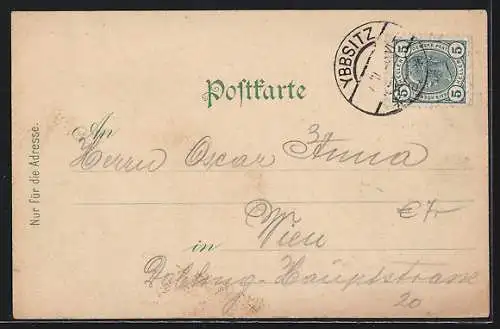 YBBSITZ
5 5
5 5
Postkarte
Nur für die Adresse.
An
Herrn Oscar
Wien
€7,-
in
Döbling-Hauptstrasse
20